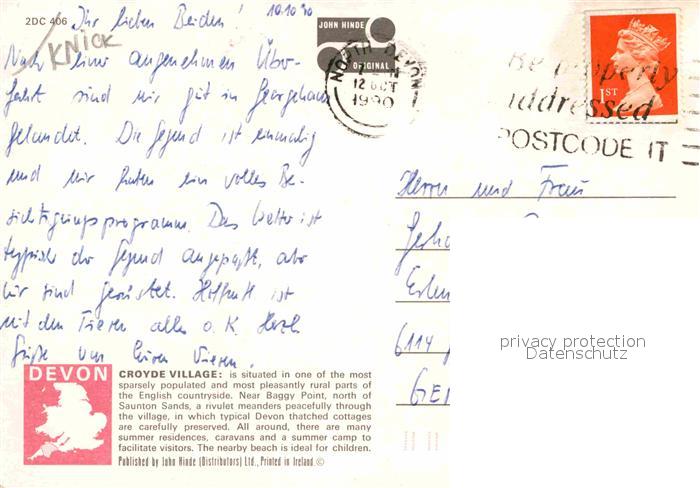 2DC 406
Ihr lieben Beiden! 10.10.90
KNICK
JOHN HINDE
ORIGINAL
Nach einer angenehmen Über-
fahrt sind wir gut in Georgeham
gelandet. Die Gegend ist einmalig
und wir haben ein volles Be-
sichtigungsprogramm. Das Wetter ist
typisch der Gegend angepaßt, aber
wir sind gerüstet. Hoffentl. ist
mit den Tieren alles o.K. Herzl.
Grüße von Euren Vieren.
NORTH DEVON
12 OCT
1990
Be properly
addressed
POSTCODE IT
1ST
Herrn und Frau
Gerh
Erlen
6114
GER
privacy protection
Datenschutz
DEVON
CROYDE VILLAGE: is situated in one of the most
sparsely populated and most pleasantly rural parts of
the English countryside. Near Baggy Point, north of
Saunton Sands, a rivulet meanders peacefully through
the village, in which typical Devon thatched cottages
are carefully preserved. All around, there are many
summer residences, caravans and a summer camp to
facilitate visitors. The nearby beach is ideal for children.
Published by John Hinde (Distributors) Ltd., Printed in Ireland ©